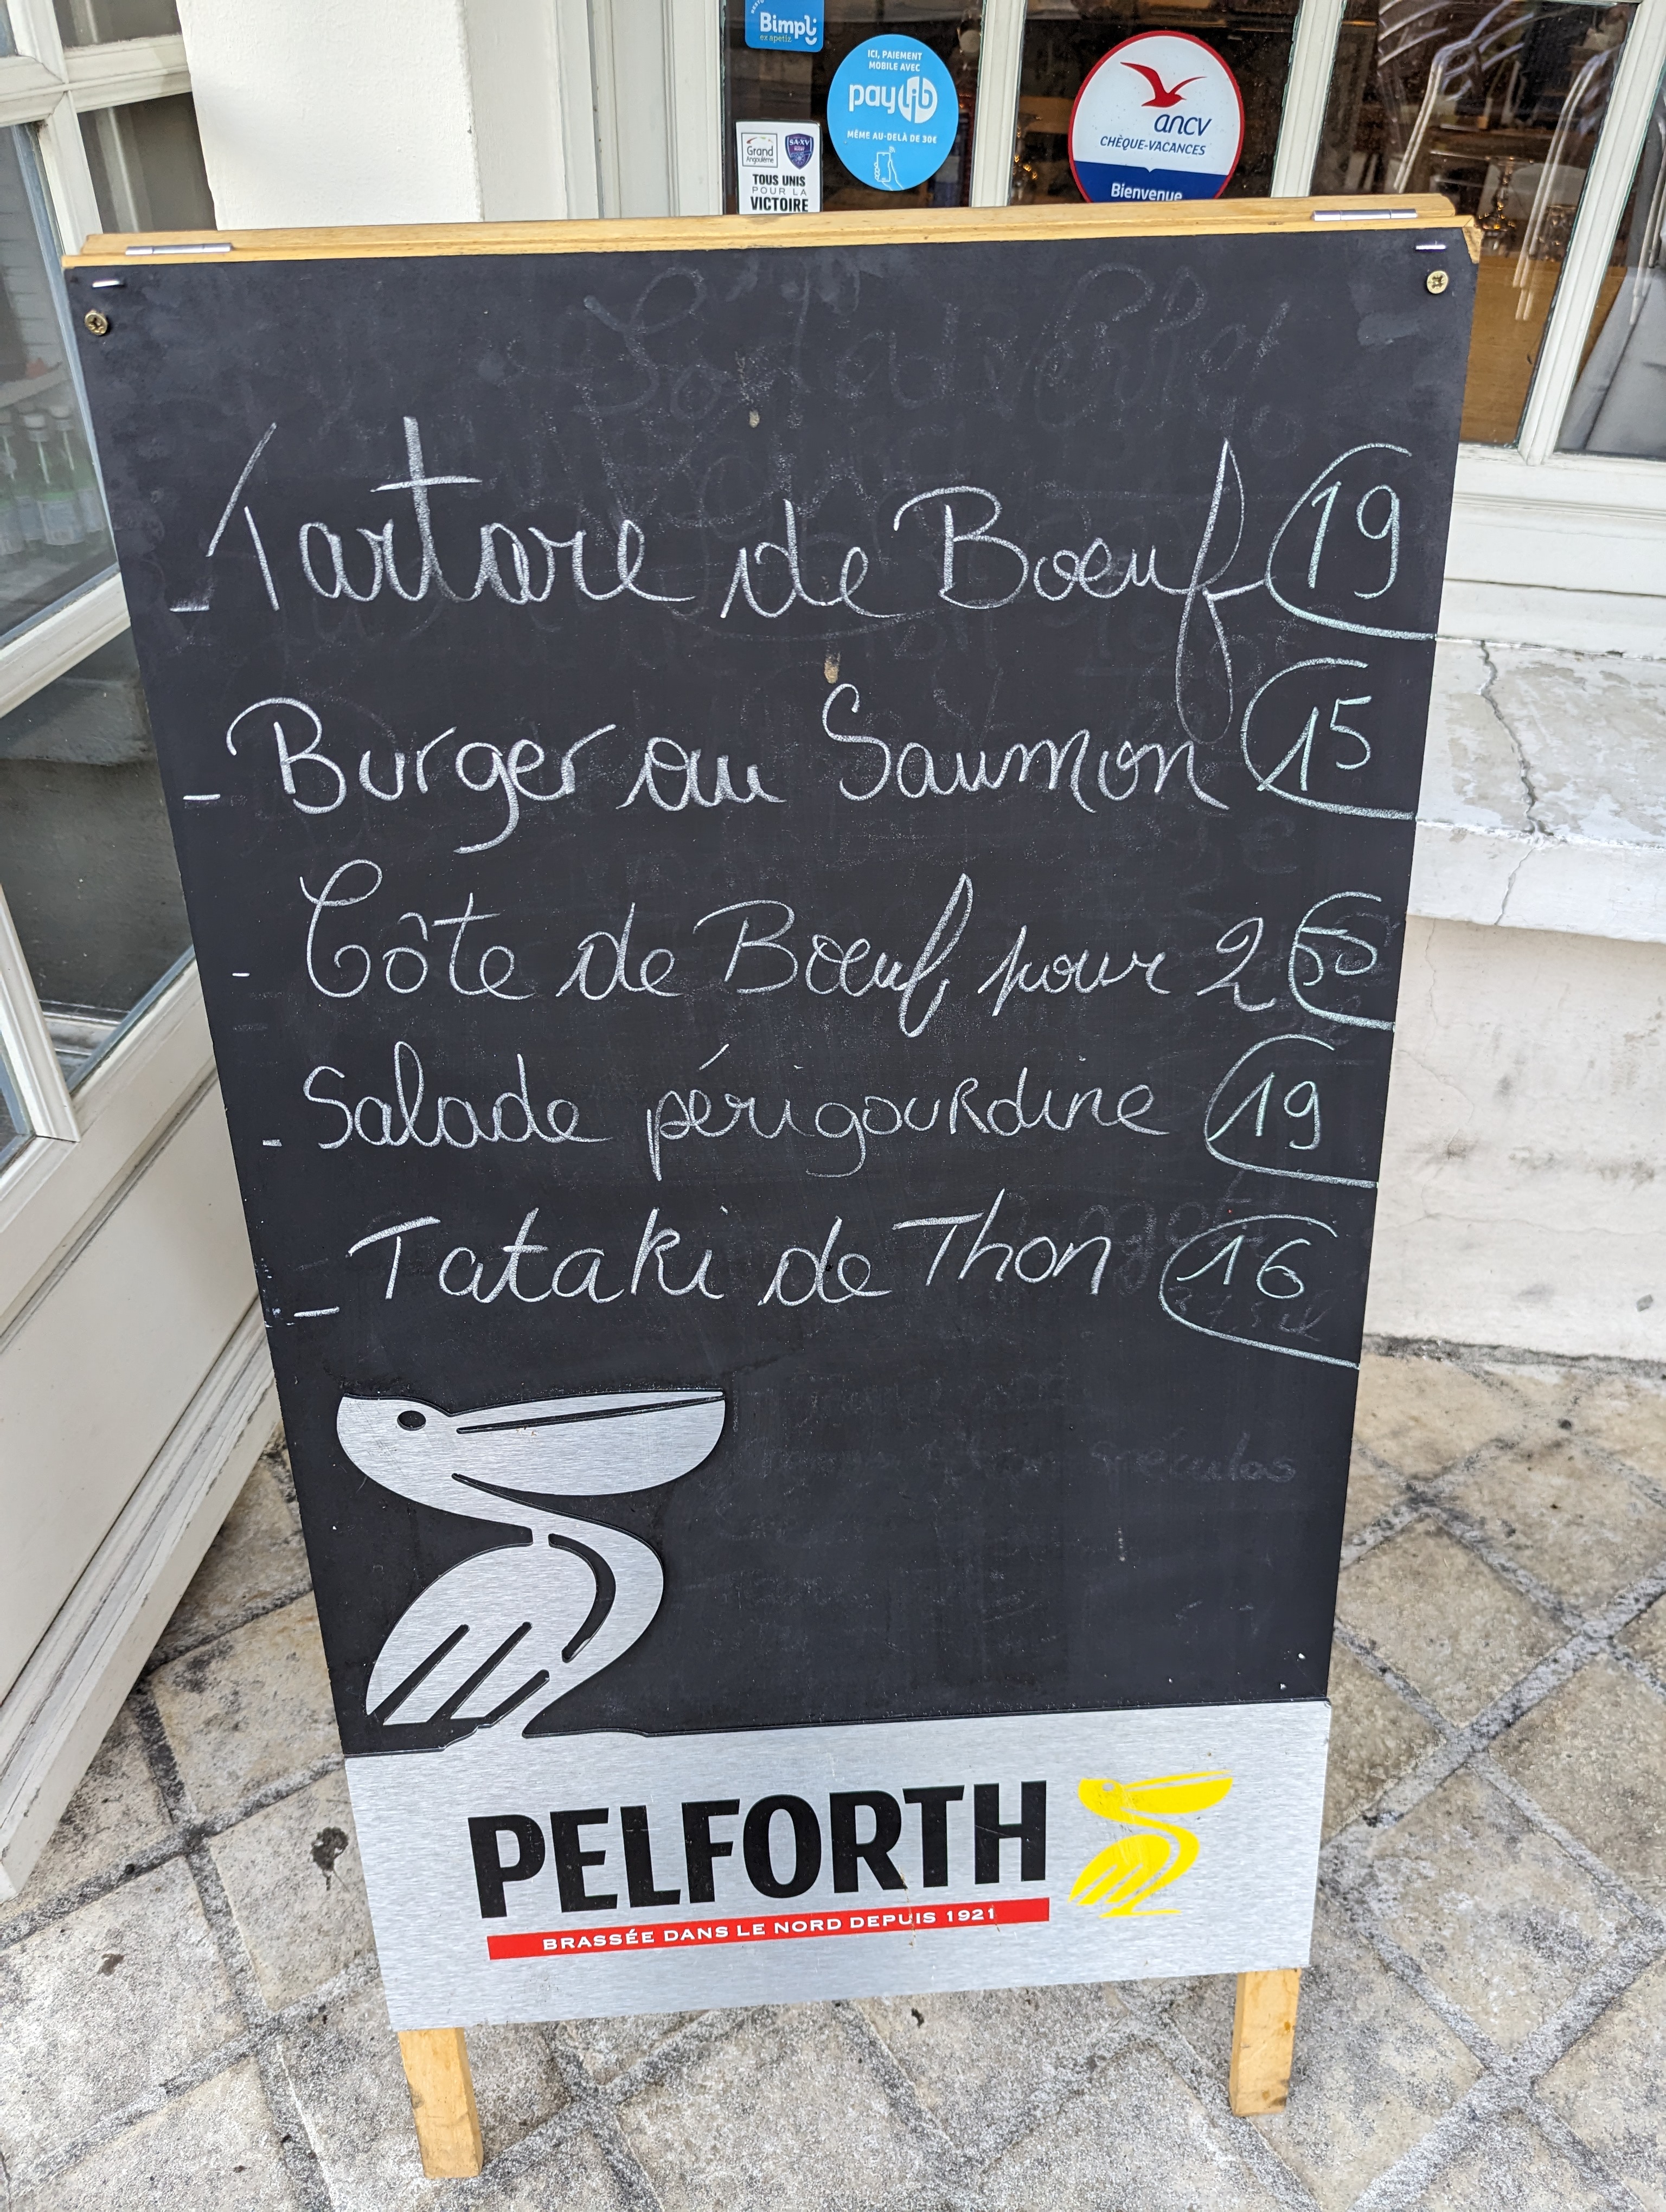 Bimpli
ex apetiz
ICI, PAIEMENT
MOBILE AVEC
paylib
MÊME AU-DELÀ DE 30€
Grand
Angoulême
SA·XV
TOUS UNIS
POUR LA
VICTOIRE
ancv
CHÈQUE-VACANCES
Bienvenue
- Tartare de Bœuf 19
- Burger au Saumon 15
- Côte de Bœuf pour 2
- Salade périgourdine 19
- Tataki de Thon 16
PELFORTH
BRASSÉE DANS LE NORD DEPUIS 1921